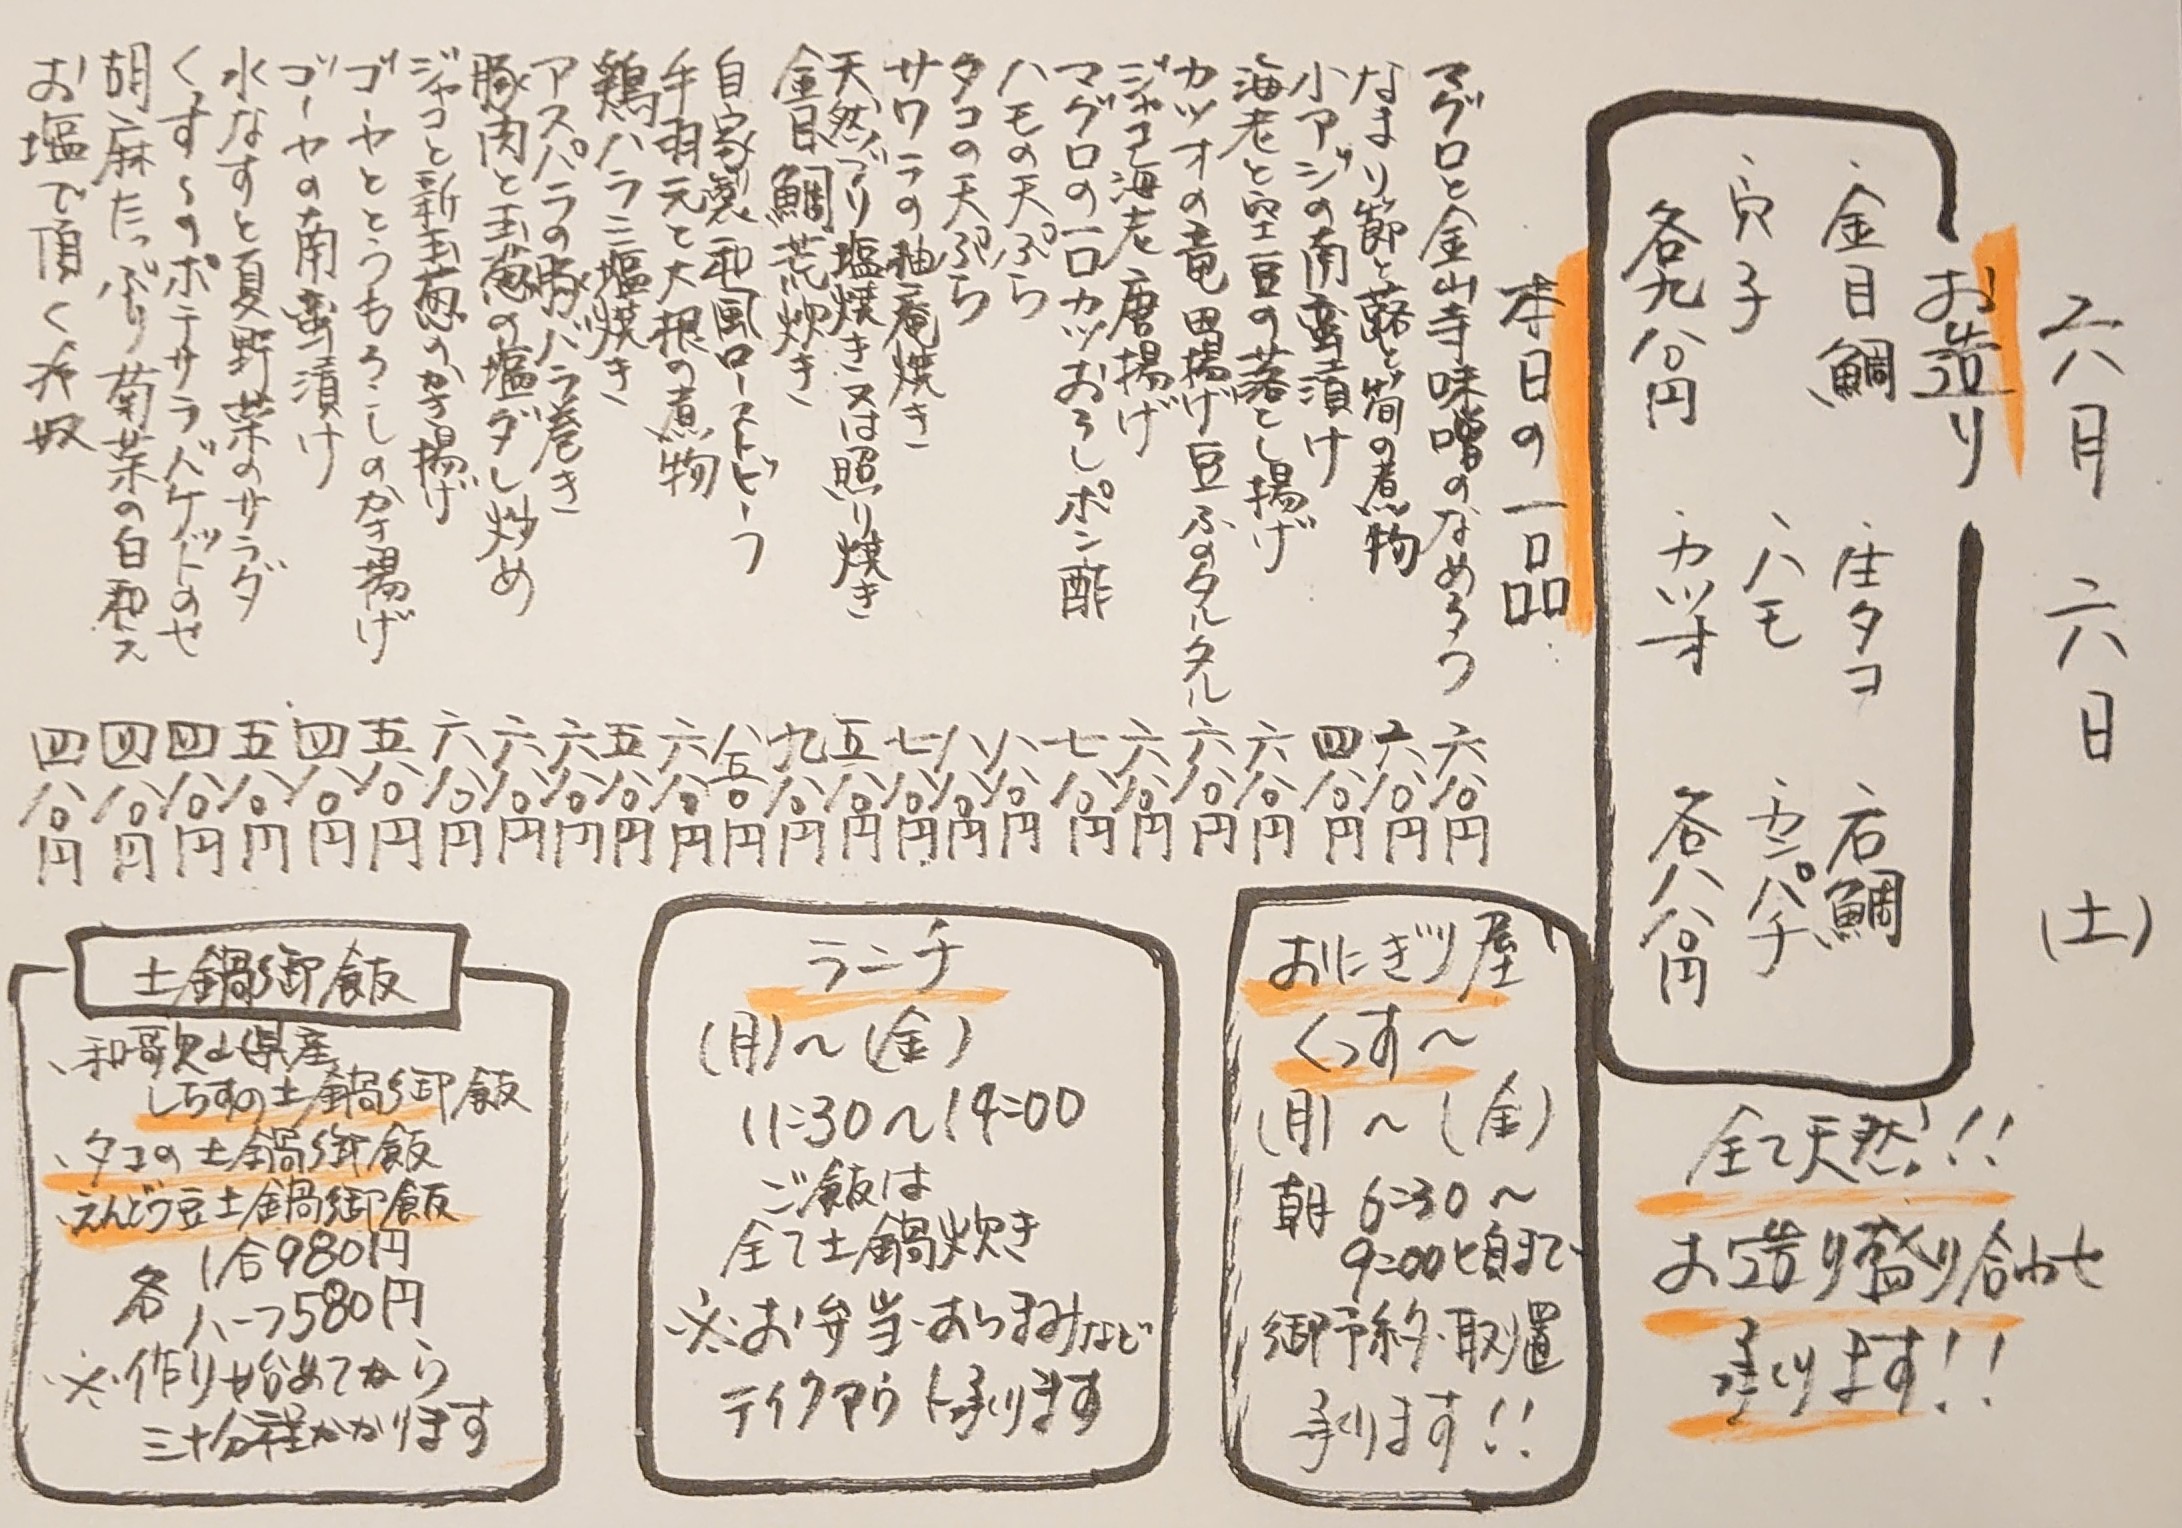 六月六日（土）
お造り
・金目鯛 ・庄タコ ・石鯛
・穴子 ・ハモ ・カンパチ
各九八〇円 ・カツオ 各八八〇円
全て天然！！
お造り盛り合わせ
承ります！！
本日の一品
マグロと金山寺味噌のなめろう 六八〇円
なまり節と蕗と筍の煮物 六八〇円
小アジの南蛮漬け 四八〇円
海老と空豆の落とし揚げ 六八〇円
カツオの竜田揚げ豆ふのタルタル 六八〇円
ジャコ海老唐揚げ 六八〇円
マグロの一口カツおろしポン酢 七八〇円
ハモの天ぷら 八八〇円
タコの天ぷら 八八〇円
サワラの柚庵焼き 七八〇円
天然ブリ塩焼き又は照り焼き 五八〇円
金目鯛荒炊き 九八〇円
自家製和風ローストビーフ 八五〇円
手羽元と大根の煮物 六八〇円
鶏ハラミ塩焼き 五八〇円
アスパラの豚バラ巻き 六八〇円
豚肉と玉葱の塩ダレ炒め 六八〇円
ジャコと新玉葱のかき揚げ 六八〇円
ゴーヤととうもろこしのかき揚げ 五八〇円
ゴーヤの南蛮漬け 四八〇円
水なすと夏野菜のサラダ 五八〇円
くっす〜のポテサラバケットのせ 四八〇円
胡麻たっぷり菊菜の白和え 四八〇円
お塩で頂く冷奴 四八〇円
おにぎり屋
くっす〜
（月）〜（金）
朝 6:30〜
9:00頃まで
御予約・取置
承ります！！
ランチ
（月）〜（金）
11:30〜14:00
ご飯は
全て土鍋炊き
※お弁当・おつまみなど
テイクアウト承ります
土鍋御飯
・和歌山県産
しらすの土鍋御飯
・タコの土鍋御飯
・えんどう豆土鍋御飯
各 1合980円
ハーフ580円
※作り始めてから
三十分程かかります